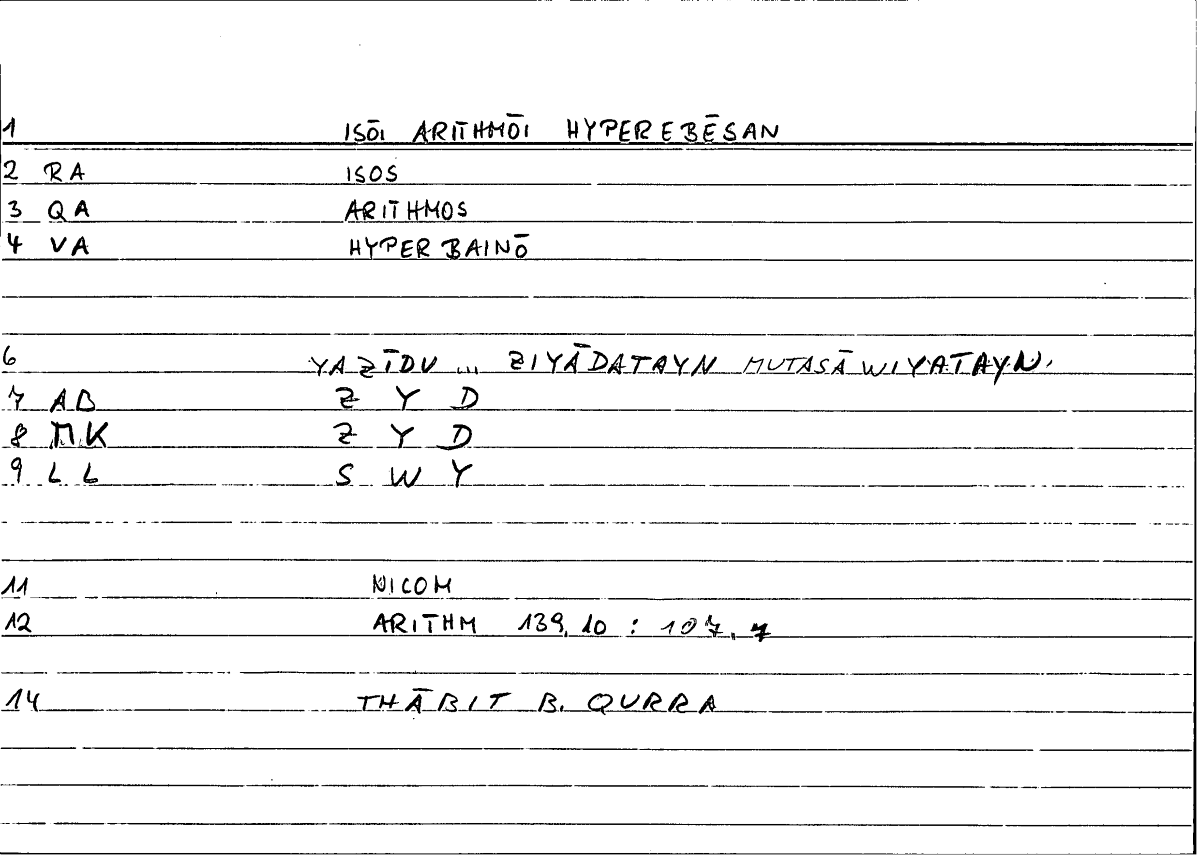 1 ISŌI ARITHMŌI HYPEREBĒSAN
2 RA ISOS
3 QA ARITHMOS
4 VA HYPERBAINŌ
6 YAZĪDU ... ZIYĀDATAYN MUTASĀWIYATAYN.
7 AB Z Y D
8 MK Z Y D
9 LL S W Y
11 NICOM
12 ARITHM 139,10 : 107,7
14 THĀBIT B. QURRA